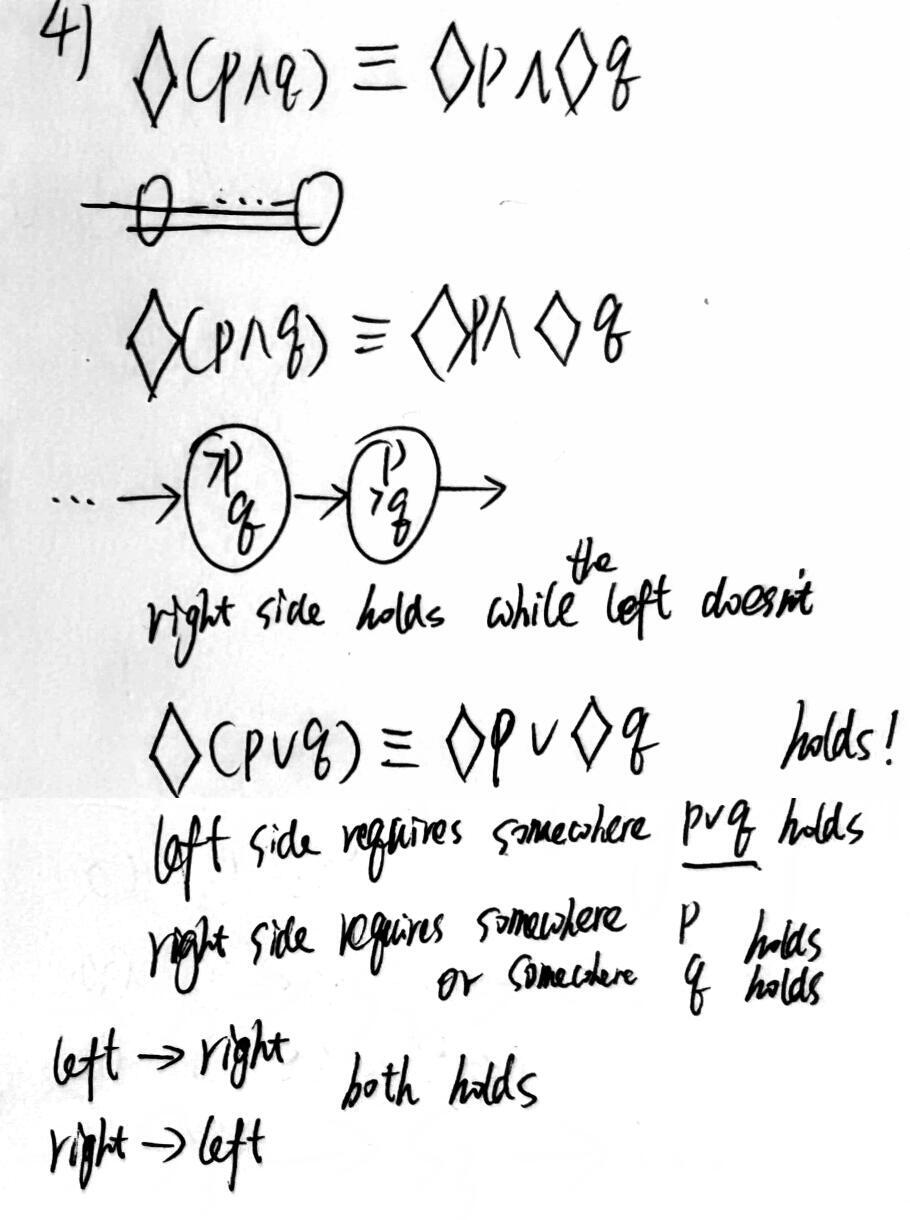 4) ◇(p∧q) ≡ ◇p∧◇q
...
◇(p∧q) ≡ ◇p∧ ◇q
... → ¬p q → p ¬q →
right side holds while the left doesn't
◇(p∨q) ≡ ◇p ∨ ◇q holds!
left side requires somewhere p∨q holds
right side requires somewhere p holds
or somewhere q holds
left → right
both holds
right → left